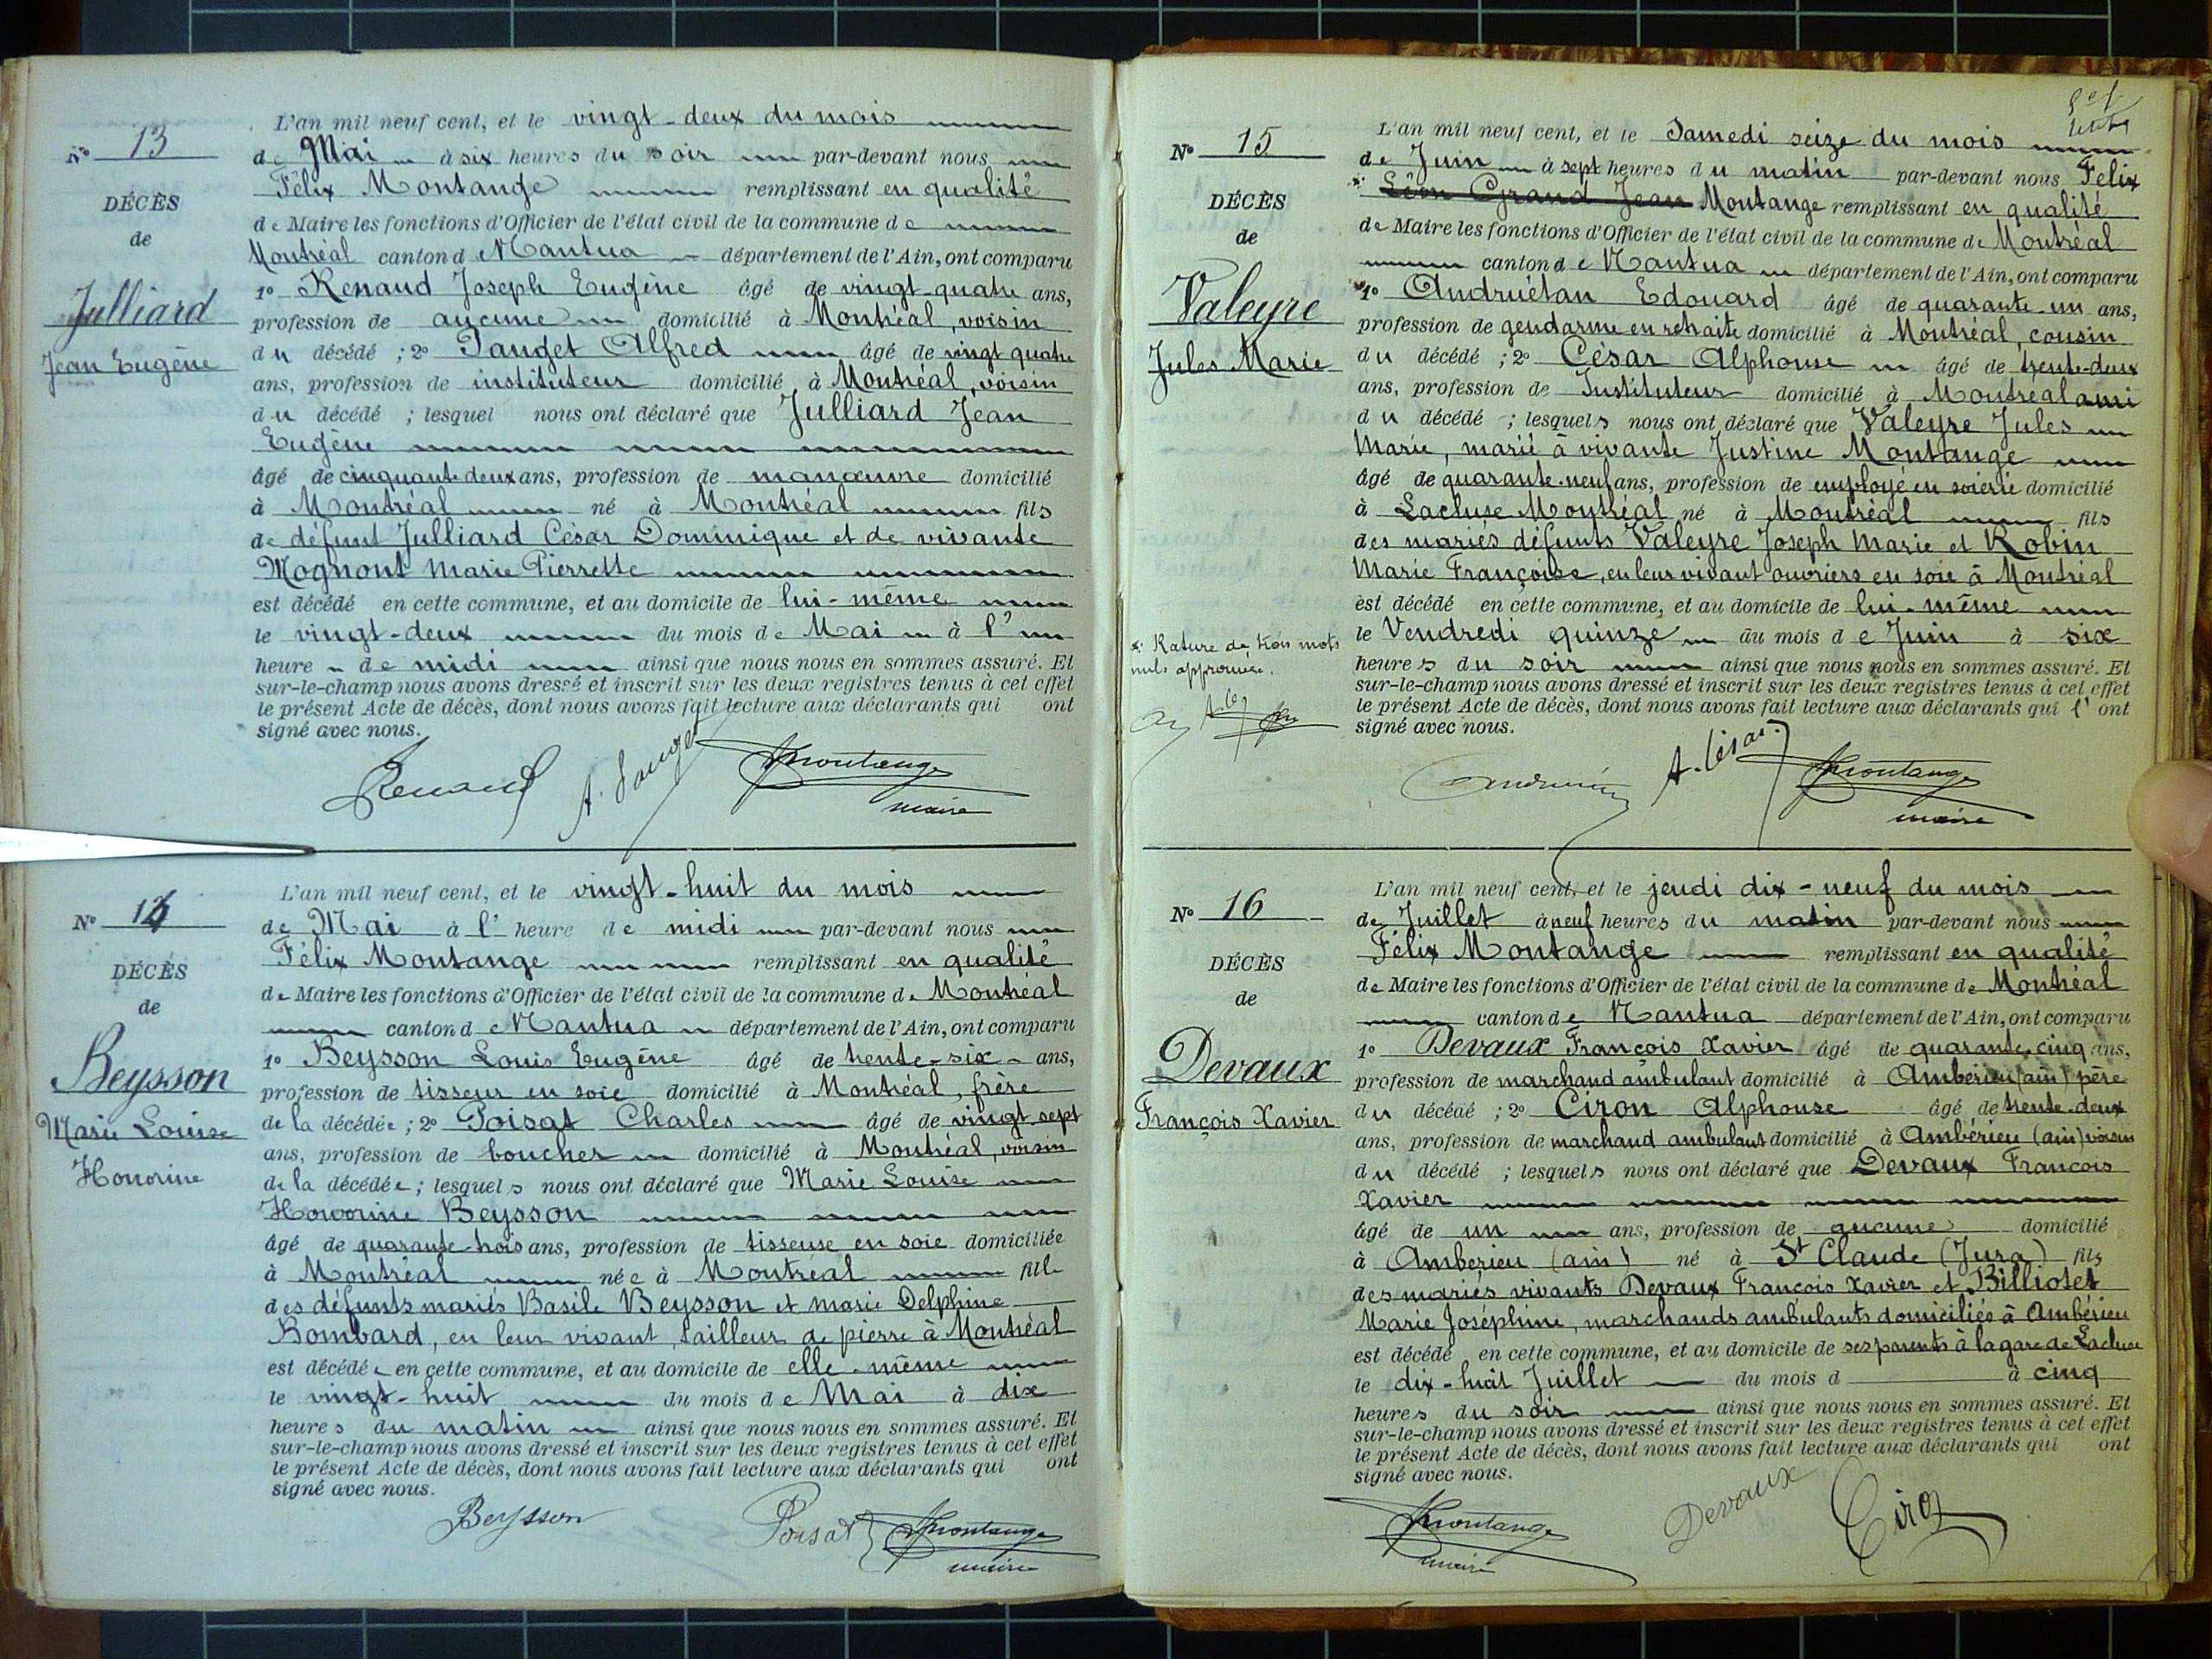 N° 13
DÉCÈS
de
Julliard
Jean Eugène
L'an mil neuf cent, et le vingt-deux du mois
de Mai à six heures du soir par-devant nous
Félix Montange remplissant en qualité
de Maire les fonctions d'Officier de l'état civil de la commune de
Montréal canton de Nantua département de l'Ain, ont comparu
1° Renaud Joseph Eugène âgé de vingt-quatre ans,
profession de aucune domicilié à Montréal, voisin
du décédé ; 2° Tanget Alfred âgé de vingt quatre
ans, profession de instituteur domicilié à Montréal, voisin
du décédé ; lesquel nous ont déclaré que Julliard Jean
Eugène
âgé de cinquante deux ans, profession de manœuvre domicilié
à Montréal né à Montréal fils
de défunt Julliard César Dominique et de vivante
Mognont Marie Pierrette
est décédé en cette commune, et au domicile de lui-même
le vingt-deux du mois de Mai à l'
heure de midi ainsi que nous nous en sommes assuré. Et
sur-le-champ nous avons dressé et inscrit sur les deux registres tenus à cet effet
le présent Acte de décès, dont nous avons fait lecture aux déclarants qui ont
signé avec nous.
Renaud A. Tanget Montange
maire
N° 14
DÉCÈS
de
Beysson
Marie Louise
Honorine
L'an mil neuf cent, et le vingt-huit du mois
de Mai à l' heure de midi par-devant nous
Félix Montange remplissant en qualité
de Maire les fonctions d'Officier de l'état civil de la commune de Montréal
canton de Nantua département de l'Ain, ont comparu
1° Beysson Louis Eugène âgé de trente-six ans,
profession de tisseur en soie domicilié à Montréal, frère
de la décédée ; 2° Poisat Charles âgé de vingt-sept
ans, profession de boucher domicilié à Montréal, voisin
de la décédée ; lesquels nous ont déclaré que Marie Louise
Honorine Beysson
âgé de quarante-trois ans, profession de tisseuse en soie domiciliée
à Montréal née à Montréal fille
des défunts mariés Basile Beysson et Marie Delphine
Bombard, en leur vivant, tailleur de pierre à Montréal
est décédée en cette commune, et au domicile de elle-même
le vingt-huit du mois de Mai à dix
heures du matin ainsi que nous nous en sommes assuré. Et
sur-le-champ nous avons dressé et inscrit sur les deux registres tenus à cet effet
le présent Acte de décès, dont nous avons fait lecture aux déclarants qui ont
signé avec nous.
Beysson Poisat Montange
maire
N° 15
DÉCÈS
de
Valeyre
Jules Marie
L'an mil neuf cent, et le Samedi seize du mois
de Juin à sept heures du matin par-devant nous Félix
Léon Grand Jean Montange remplissant en qualité
de Maire les fonctions d'Officier de l'état civil de la commune de Montréal
canton de Nantua département de l'Ain, ont comparu
1° Andruétan Edouard âgé de quarante-un ans,
profession de gendarme en retraite domicilié à Montréal, cousin
du décédé ; 2° César Alphonse âgé de trente-deux
ans, profession de Instituteur domicilié à Montréal ami
du décédé ; lesquels nous ont déclaré que Valeyre Jules
Marie, marié à vivante Justine Montange
âgé de quarante-neuf ans, profession de employé en soierie domicilié
à Lacluse Montréal né à Montréal fils
des mariés défunts Valeyre Joseph Marie et Robin
Marie Françoise, en leur vivant ouvriers en soie à Montréal
est décédé en cette commune, et au domicile de lui-même
le Vendredi quinze du mois de Juin à six
heures du soir ainsi que nous nous en sommes assuré. Et
sur-le-champ nous avons dressé et inscrit sur les deux registres tenus à cet effet
le présent Acte de décès, dont nous avons fait lecture aux déclarants qui l'ont
signé avec nous.
Rature de trois mots
nuls approuvée.
A. César Montange
maire
N° 16
DÉCÈS
de
Devaux
François Xavier
L'an mil neuf cent, et le jeudi dix-neuf du mois
de Juillet à neuf heures du matin par-devant nous
Félix Montange remplissant en qualité
de Maire les fonctions d'Officier de l'état civil de la commune de Montréal
canton de Nantua département de l'Ain, ont comparu
1° Devaux François Xavier âgé de quarante-cinq ans,
profession de marchand ambulant domicilié à Ambérieu (ain) père
du décédé ; 2° Ciron Alphonse âgé de trente-deux
ans, profession de marchand ambulant domicilié à Ambérieu (ain) voisin
du décédé ; lesquels nous ont déclaré que Devaux François
Xavier
âgé de un ans, profession de aucune domicilié
à Amberieu (ain) né à St Claude (Jura) fils
des mariés vivants Devaux François Xavier et Billiotet
Marie Joséphine, marchands ambulants domiciliés à Ambérieu
est décédé en cette commune, et au domicile de ses parents à la gare de Lacluse
le dix-huit Juillet du mois d à cinq
heures du soir ainsi que nous nous en sommes assuré. Et
sur-le-champ nous avons dressé et inscrit sur les deux registres tenus à cet effet
le présent Acte de décès, dont nous avons fait lecture aux déclarants qui ont
signé avec nous.
Montange Devaux Ciron
maire